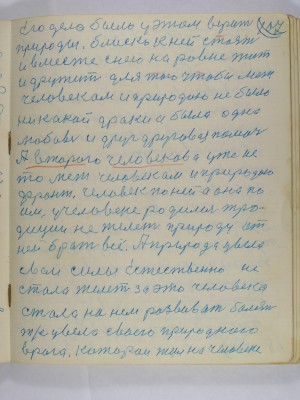 Его дело было у этом верит
природы. близко к ней стоят
и вместе с нею на ровне жит
и дружит для того чтобы меж
человекам и природаю не было
никакой драки а была одна
любовь и друг другавая помач
А второго человекова уже не
то меж человекам и природаю
фронт. человек по ней а она по
им. у человека родился тра
диция не желет природу от
неё брат всё. А природа увела
свои силы Естественно не
стала жалет за это человека
стала на нем развиват болет
уже увела своего природнаго
врага. Каторай жил на человеке